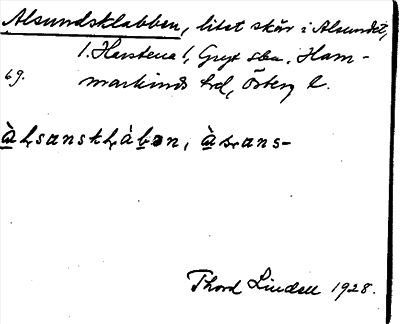 Alsundsklabben, litet skär i Alsundet,
1. Harstena 1, Gryt sn, Ham-
69. markinds hd, Österg l.
àlsansklàbən, àsans-
Thord Lindell 1928.